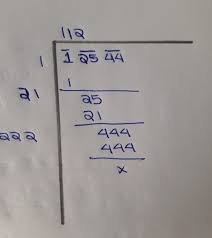 112
1 1 25 44
1
21 25
21
222 444
444
x